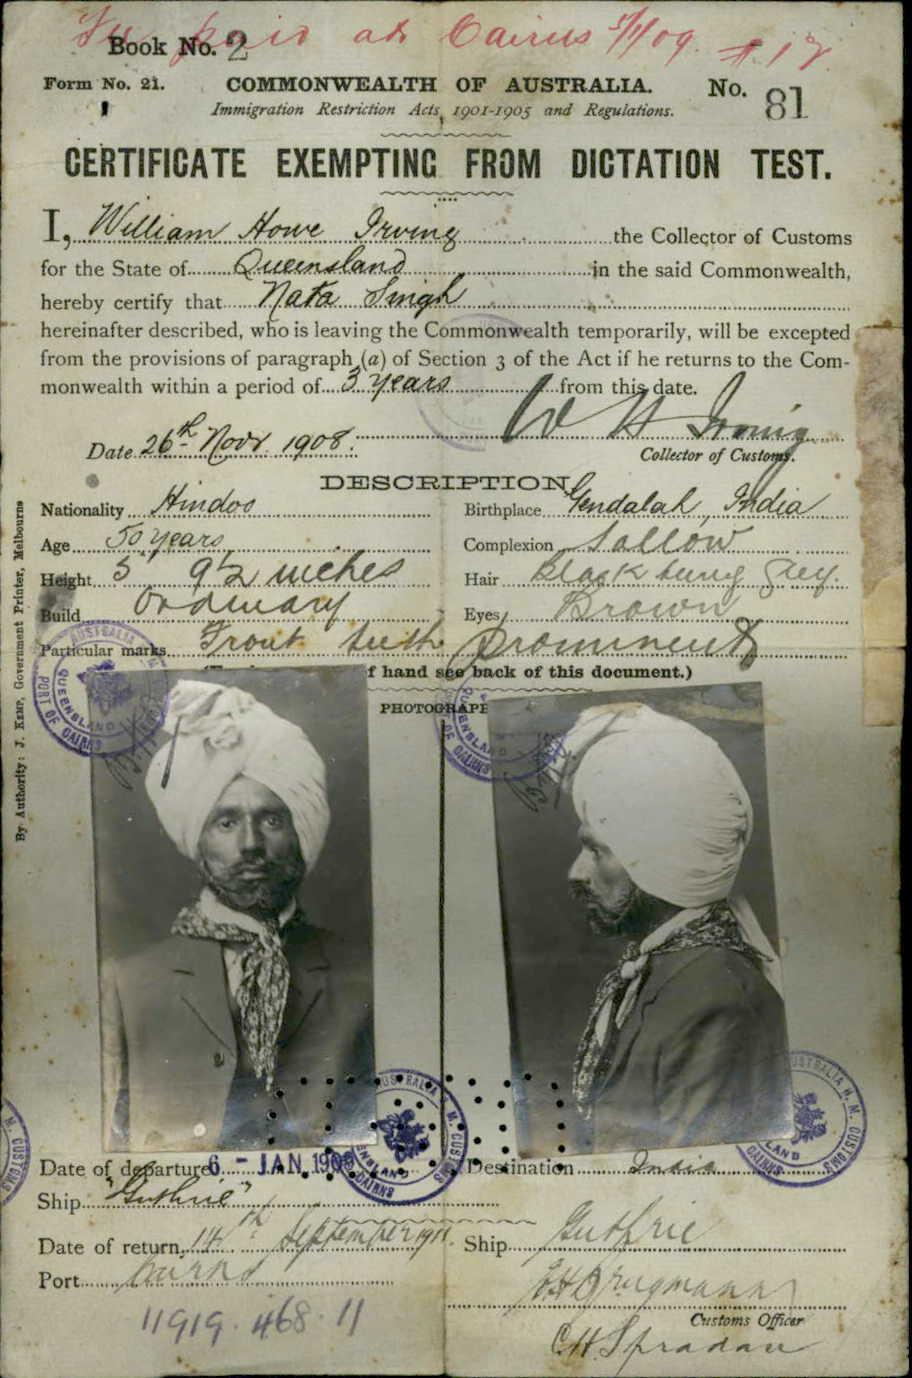 Book No. 2
Cairns 5/1/09.
Form No. 21.
COMMONWEALTH OF AUSTRALIA.
No. 81
Immigration Restriction Acts, 1901-1905 and Regulations.
CERTIFICATE EXEMPTING FROM DICTATION TEST.
I, William Howe Irving the Collector of Customs
for the State of Queensland in the said Commonwealth,
hereby certify that Nata Singh
hereinafter described, who is leaving the Commonwealth temporarily, will be excepted
from the provisions of paragraph (a) of Section 3 of the Act if he returns to the Com-
monwealth within a period of 3 years from this date.
W H Irving
Date 26th Novr. 1908.
Collector of Customs.
DESCRIPTION.
Nationality Hindoo
Birthplace Gendalah, India
Age 50 years
Complexion Sallow
Height 5' 9½ inches
Hair Black turng grey.
Build Ordinary
Eyes Brown
Particular marks Front teeth prominent
f hand see back of this document.)
PHOTOGRAPH
AUSTRALIA
QUEENSLAND
PORT OF CAIRNS
QUEENSLAND
OF CAIRNS
By Authority: J. KEMP, Government Printer, Melbourne
AUSTRALIA H. M. CUSTOMS
CAIRNS
AUSTRALIA H. M. CUSTOMS
CUSTOMS
Date of departure 6 - JAN 1909
Destination India
Ship "Guthrie"
Date of return 14th September 1911.
Ship Guthrie
Port Cairns
Customs Officer
11919.468.11